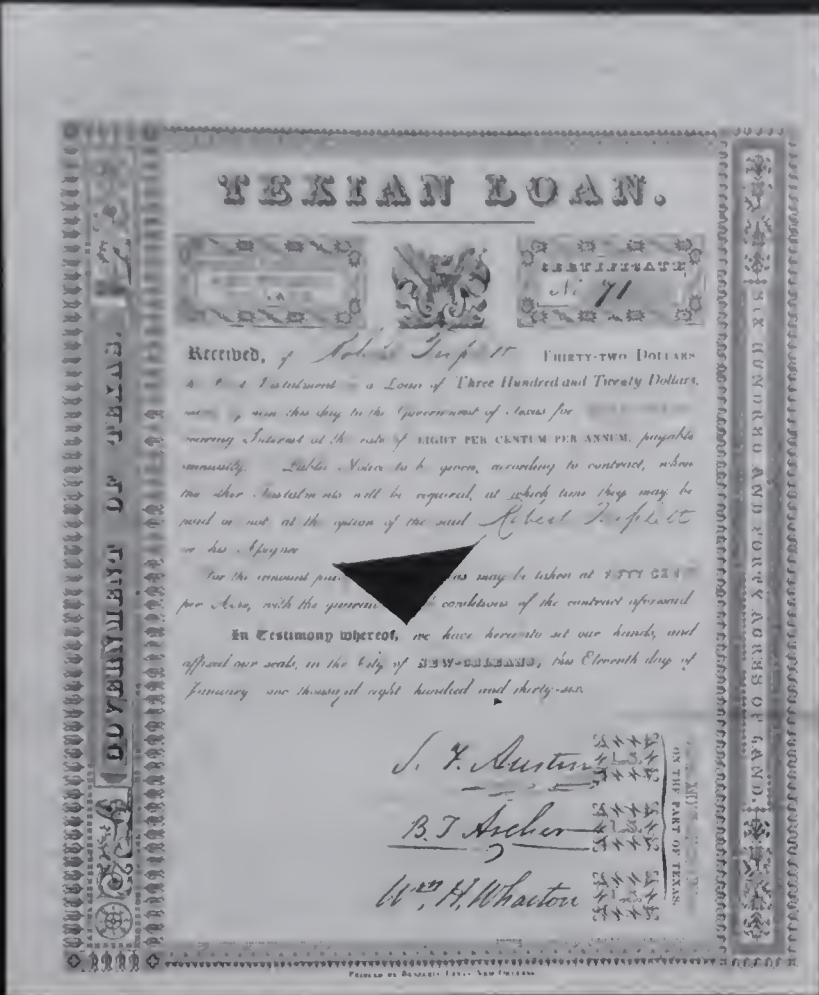 TEXIAN LOAN.
CERTIFICATE
No 71
Received, of Robert Triplett THIRTY-TWO DOLLARS
Instalment a Loan of Three Hundred and Twenty Dollars,
this day to the Government of Texas for
Interest at the rate of EIGHT PER CENTUM PER ANNUM, payable
annually. Public Notice to be given, according to contract, when
the other Instalments will be required, at which time they may be
paid or not at the option of the said Robert Triplett
or his
For the amount may be taken at FIFTY CENTS
per Acre, with the conditions of the contract aforesaid
In Testimony whereof, we have hereunto set our hands, and
affixed our seals, in the City of NEW-ORLEANS, this Eleventh day of
January one thousand eight hundred and thirty-six.
S. F. Austin
B. T. Archer
Wm. H. Wharton
ON THE PART OF TEXAS.
GOVERNMENT OF TEXAS.
SIX HUNDRED AND FORTY ACRES OF LAND.
PRINTED BY BENJAMIN LEVY NEW ORLEANS